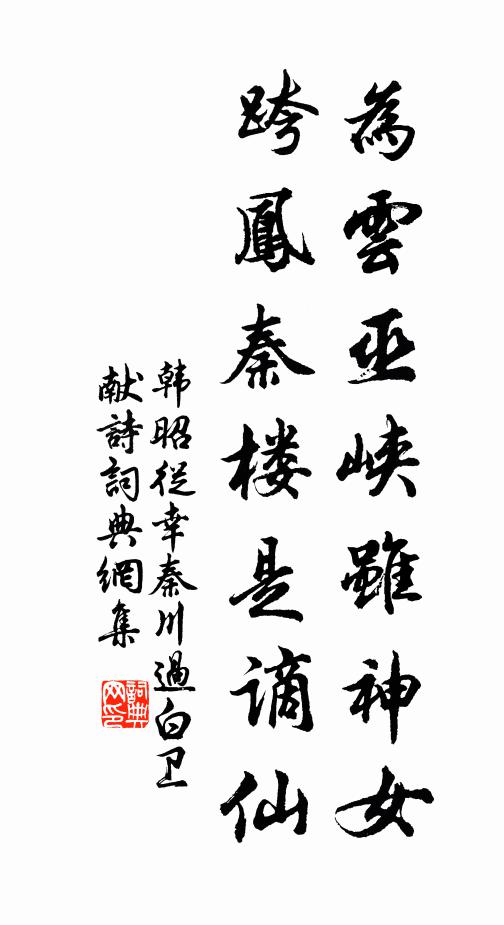 為雲巫峽雖神女
跨鳳秦楼是谪仙
韩昭從幸秦川過白卫
献詩詞典網集
詞典
网印